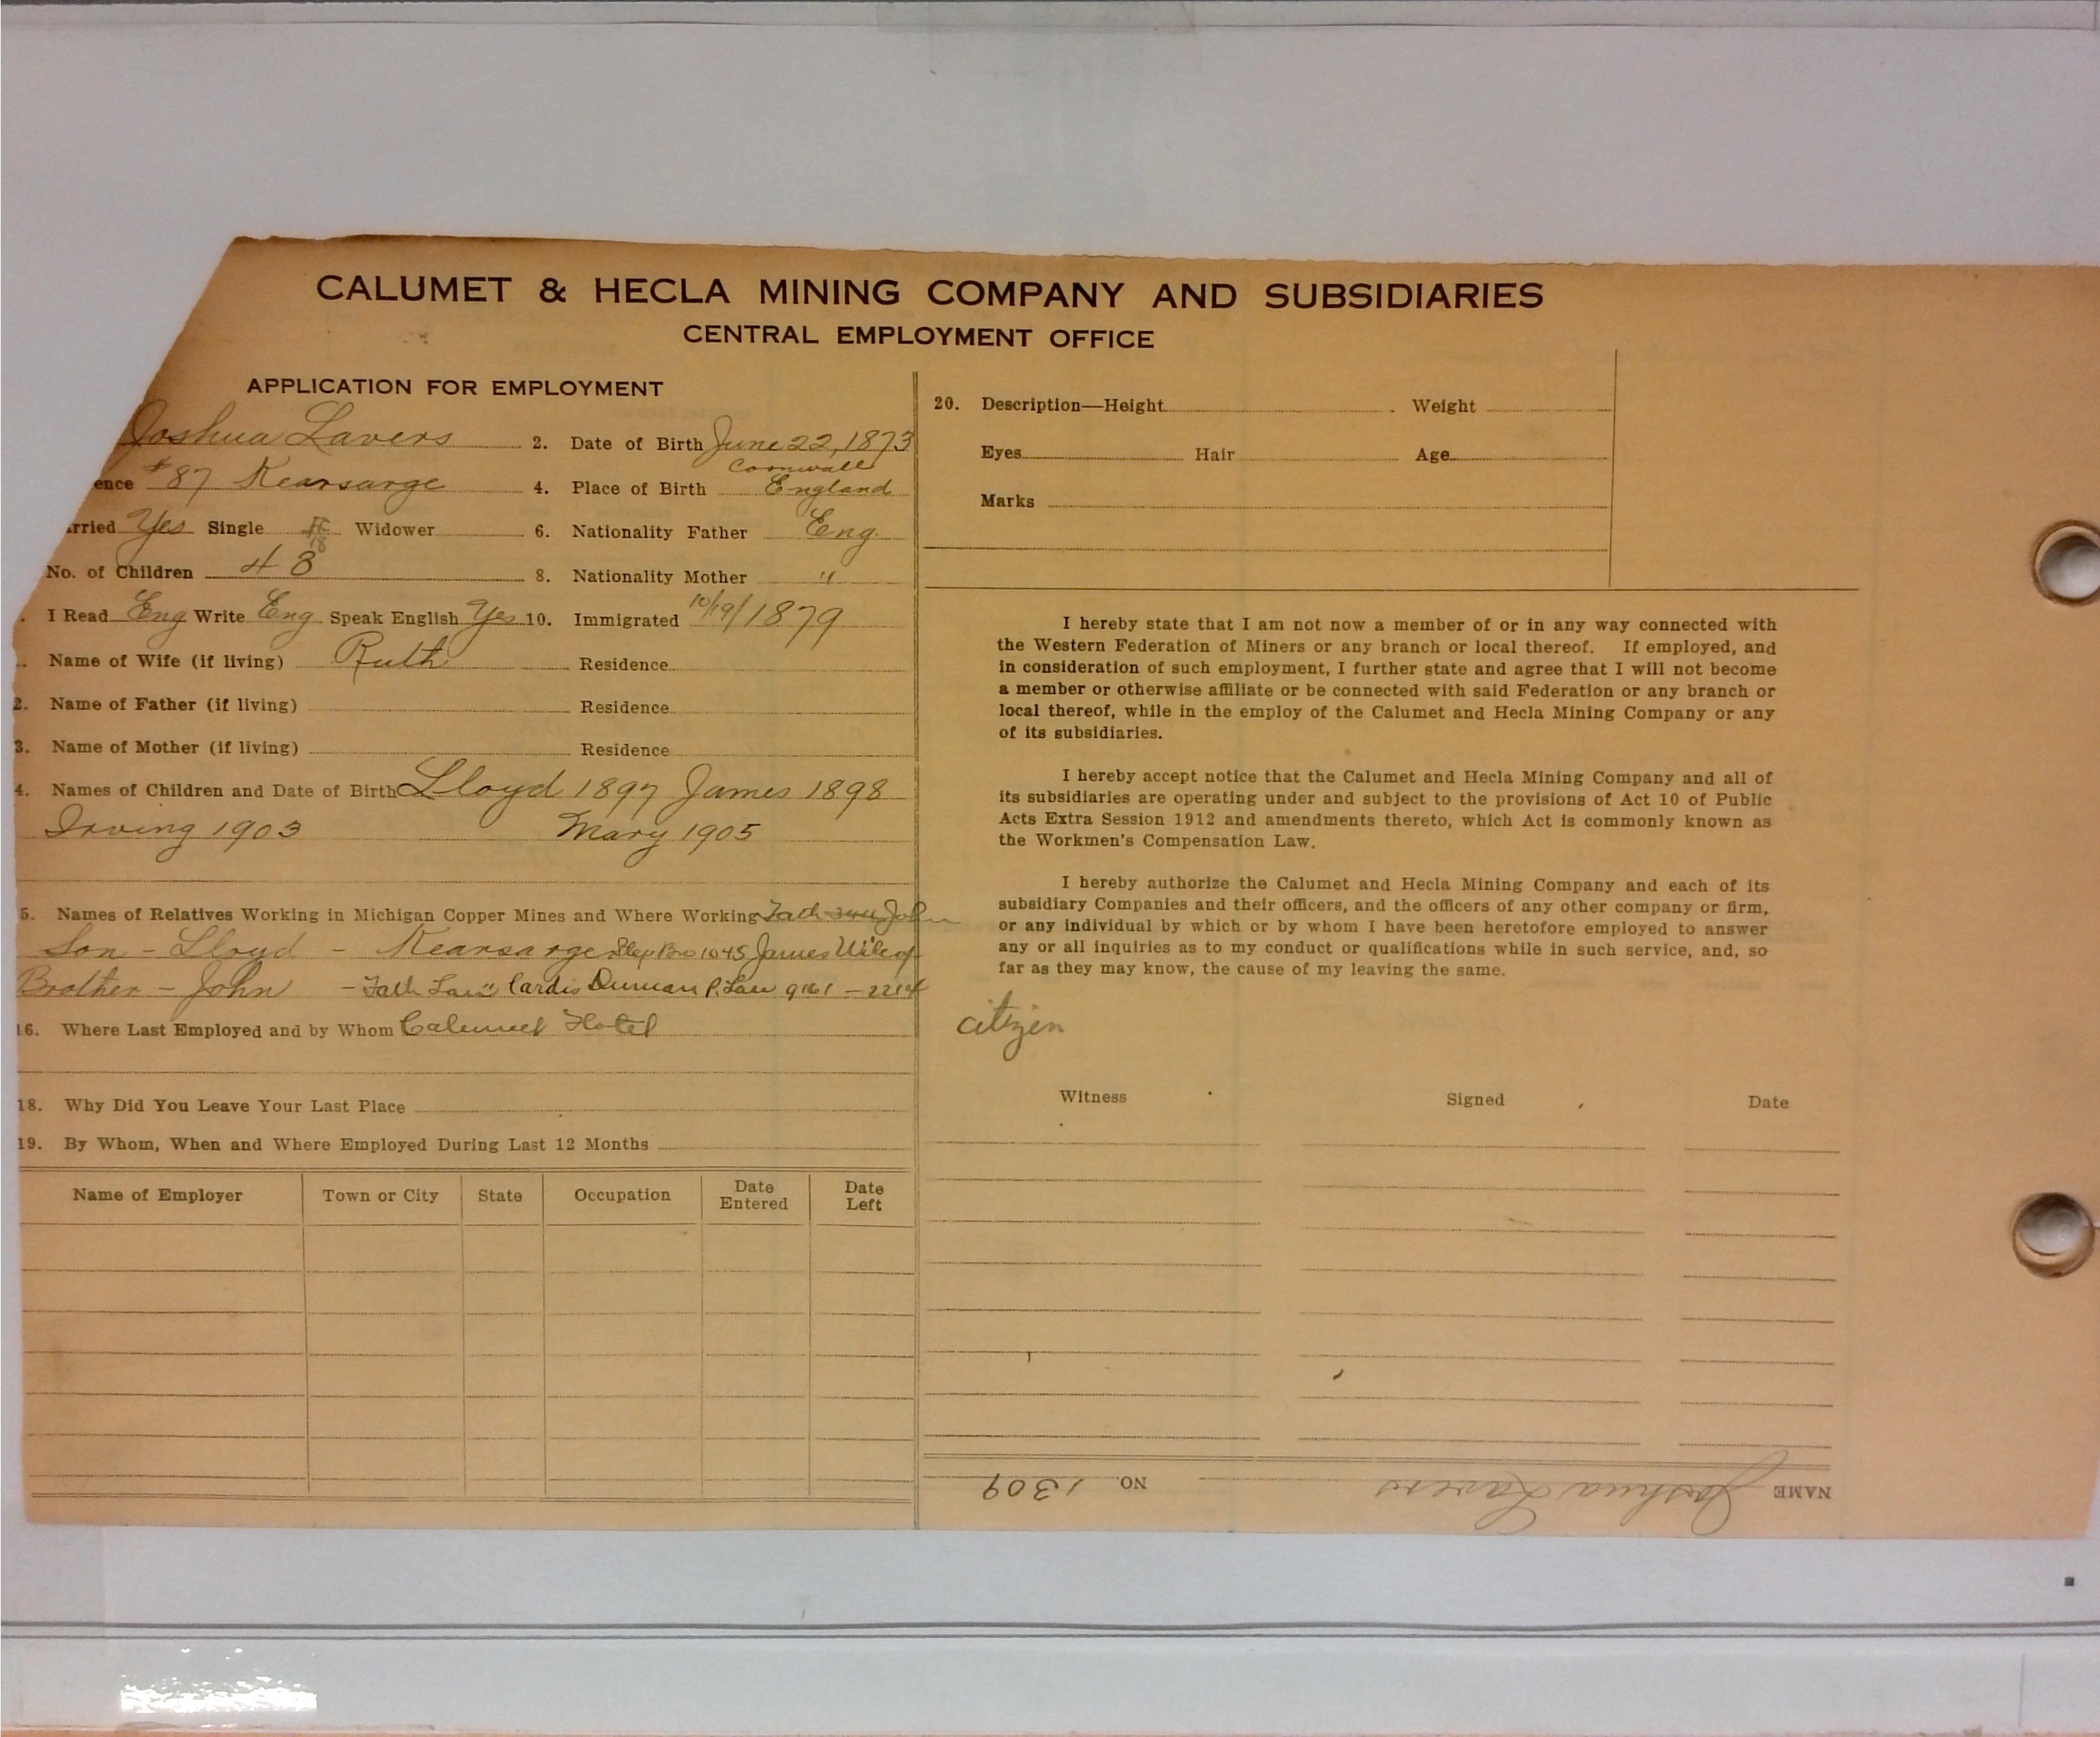 CALUMET & HECLA MINING COMPANY AND SUBSIDIARIES
CENTRAL EMPLOYMENT OFFICE
APPLICATION FOR EMPLOYMENT
Joshua Lavers 2. Date of Birth June 22, 1873
ence #87 Kearsarge 4. Place of Birth Cornwall England
rried Yes Single Widower 6. Nationality Father Eng.
No. of Children 4 3 8. Nationality Mother "
. I Read Eng Write Eng Speak English Yes 10. Immigrated 10/19/1879
. Name of Wife (if living) Ruth Residence
2. Name of Father (if living) Residence
3. Name of Mother (if living) Residence
4. Names of Children and Date of Birth Lloyd 1897 James 1898
Irving 1903 Mary 1905
5. Names of Relatives Working in Michigan Copper Mines and Where Working John
Son - Lloyd - Kearsarge Step Bro 1045 James
Brother - John - Fath Law 9161 - 2214
16. Where Last Employed and by Whom Calumet Hotel
18. Why Did You Leave Your Last Place
19. By Whom, When and Where Employed During Last 12 Months
Name of Employer Town or City State Occupation Date Entered Date Left
20. Description—Height Weight
Eyes Hair Age
Marks
I hereby state that I am not now a member of or in any way connected with
the Western Federation of Miners or any branch or local thereof. If employed, and
in consideration of such employment, I further state and agree that I will not become
a member or otherwise affiliate or be connected with said Federation or any branch or
local thereof, while in the employ of the Calumet and Hecla Mining Company or any
of its subsidiaries.
I hereby accept notice that the Calumet and Hecla Mining Company and all of
its subsidiaries are operating under and subject to the provisions of Act 10 of Public
Acts Extra Session 1912 and amendments thereto, which Act is commonly known as
the Workmen's Compensation Law.
I hereby authorize the Calumet and Hecla Mining Company and each of its
subsidiary Companies and their officers, and the officers of any other company or firm,
or any individual by which or by whom I have been heretofore employed to answer
any or all inquiries as to my conduct or qualifications while in such service, and, so
far as they may know, the cause of my leaving the same.
citizen
Witness Signed Date
NAME Joshua Lavers NO. 1309